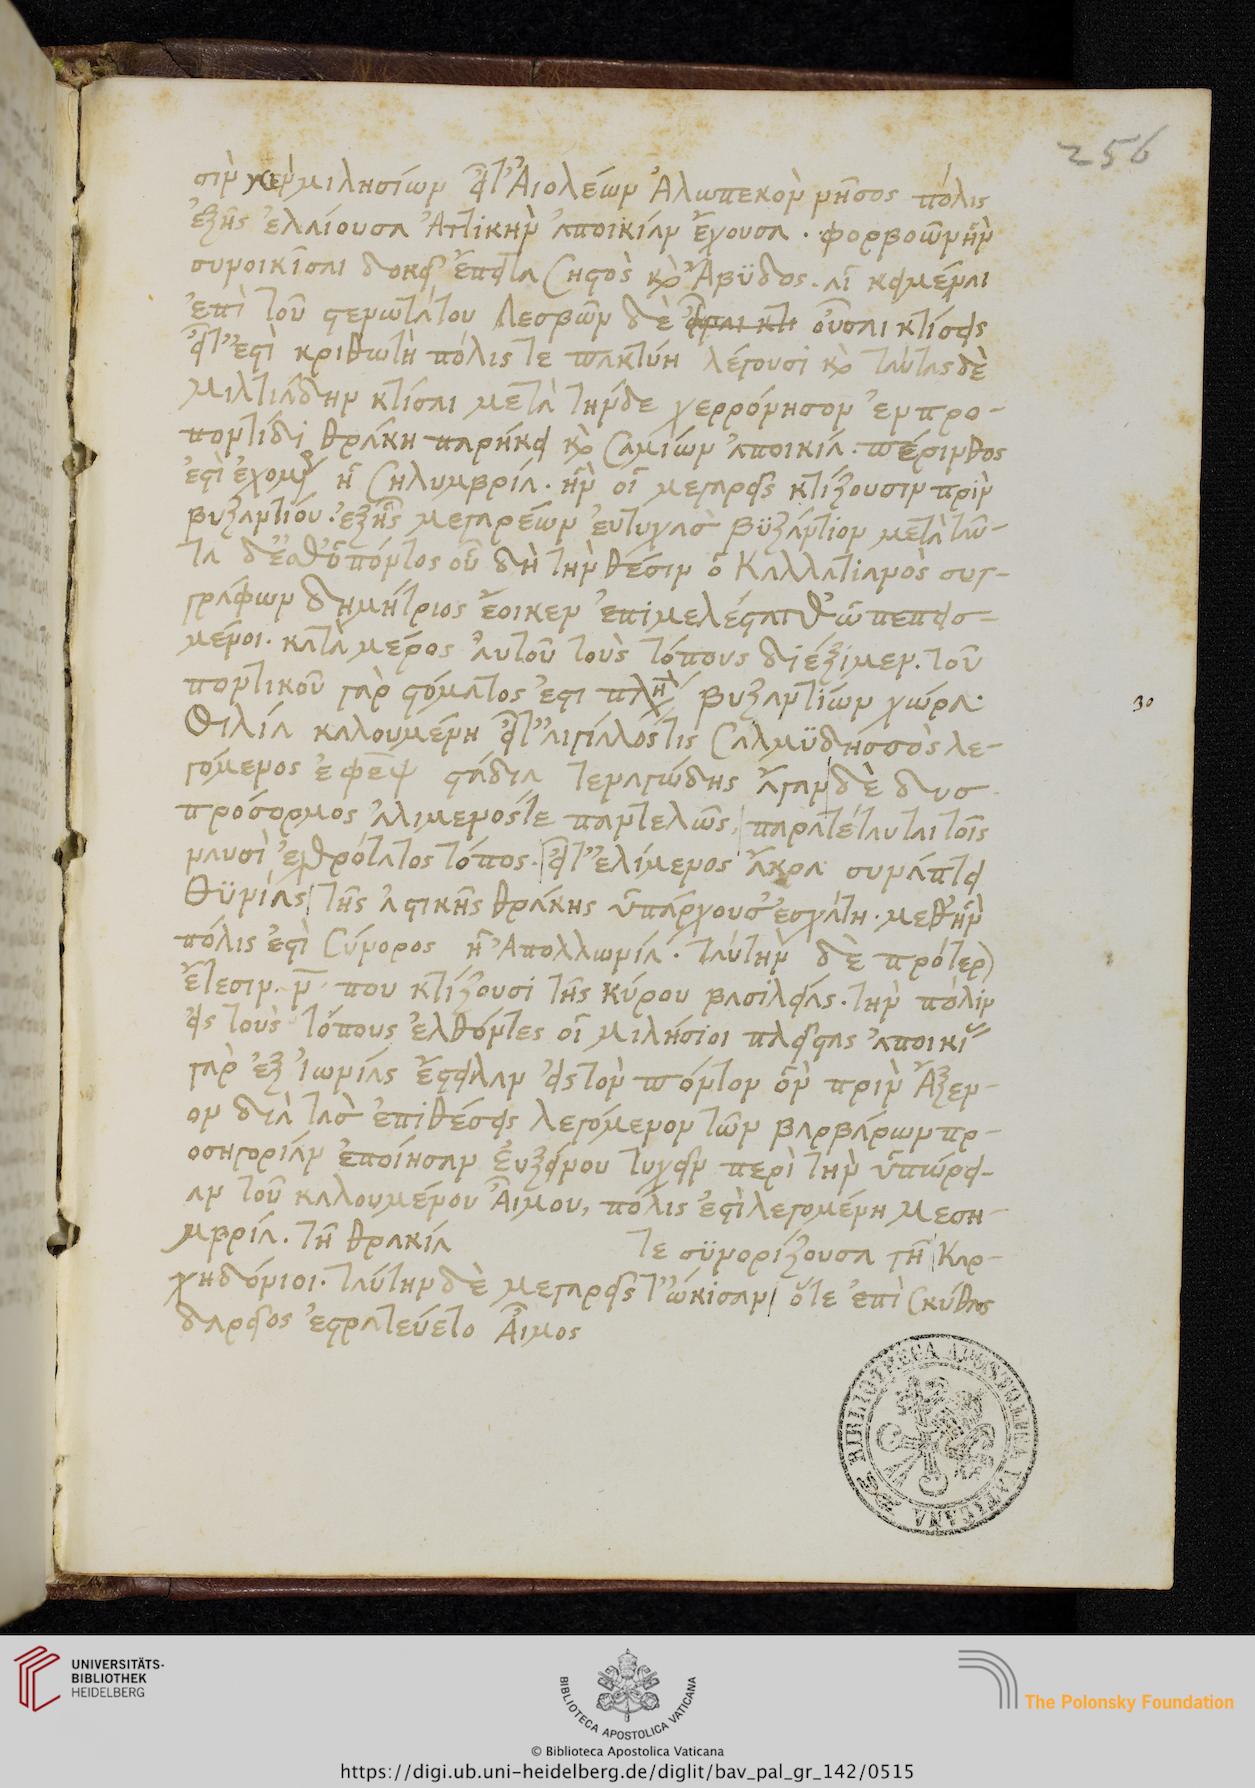 256
σιν μὲν μιλησίων εἶτ' Αἰολέων Ἀλωπεκον νῆσος πόλις
ἑξῆς ἐλαίουσα Ἀττικὴν ἀποικίαν ἔχουσα. φορβοῶν ἣν
συνοικίσαι δοκεῖ ἔπειτα Σηστὸς καὶ Ἀβϋδος. αἱ κείμεναι
ἐπὶ τοῦ στενωτάτου Λεσβῶν δὲ οὖσαι κτίσεις
εἶτ' ἐστὶ κριθωτὴ πόλις τε πακτύη λέγουσι καὶ ταύτας δὲ
Μιλτιάδην κτίσαι μετὰ τήνδε χερρόνησον ἐν προ-
ποντίδι θράκη παρήκει καὶ Σαμίων ἀποικία. πέρινθος
ἐστὶ ἐχομεν ἡ Σηλυμβρία. ἣν οἱ μεγαρεῖς κτίζουσιν πρὶν
βυζαντίου. ἑξῆς μεγαρέων εὐτυχασ βϋζάντιον μετὰ ταῦ-
τα δ' ἐσθ' ὁ πόντος οὗ δὴ τὴν θέσιν ὁ Καλλατιανὸς συγ-
γράφων δημήτριος ἔοικεν ἐπιμελέστατ
μένοι. κατὰ μέρος αὐτοῦ τοὺς τόπους διέξιμεν. τοῦ
ποντικοῦ γὰρ στόματος ἐστι βυζαντίων χώρα.
Φιλία καλουμένη εἶτ' αἰγιαλόςτις Σαλμϋδησσὸς λε-
γόμενος ἐφ' στάδια τεναγώδης ἄγαν δὲ δυσ-
πρόσορμος ἀλίμενός τε παντελῶς, παρατέταυται τοῖς
ναυσὶ ἐχθρότατος τόπος. εἶτ' ἐλίμενος ἄκρα συνάπτει
Θϋνίας τῆς ἀστικῆς θράκης ὑπάρχουσ' ἐσχάτη. μεθ' ἣν
πόλις ἐστὶ Σύνορος ἡ Ἀπολλωνία. ταύτην δὲ πρότερ
ἔτεσιν. ν̄ που κτίζουσι τῆς κύρου βασιλείας. τὴν πόλιν
εἰς τοὺς τόπους ἐλθόντες οἱ Μιλήσιοι πλείστας ἀποικι
γὰρ ἐξ ἰωνίας ἔστειλαν εἰς τον πόντον ὃν πρὶν Ἄξεν-
ον διὰ τασ ἐπιθέσεις λεγόμενον τῶν βαρβάρων πρ-
οσηγορίαν ἐποίησαν Εὐξείνου τυχεῖν περὶ τὴν ὑπώρει-
αν τοῦ καλουμένου Αἵμου, πόλις ἐστὶ λεγομένη Μεση-
μβρία. τῆ θρακία τε σϋνορίζουσα γῆ Καρ-
χηδόνιοι. ταύτην δὲ μεγαρεῖς τ' ὤκισαν ὅτε ἐπὶ Σκύθας
δαρεῖος ἐστρατεύετο Αἷμος
30
BIBLIOTECA APOSTOLICA VATICANA
UNIVERSITÄTS-
BIBLIOTHEK
HEIDELBERG
BIBLIOTECA APOSTOLICA VATICANA
The Polonsky Foundation
© Biblioteca Apostolica Vaticana
https://digi.ub.uni-heidelberg.de/diglit/bav_pal_gr_142/0515